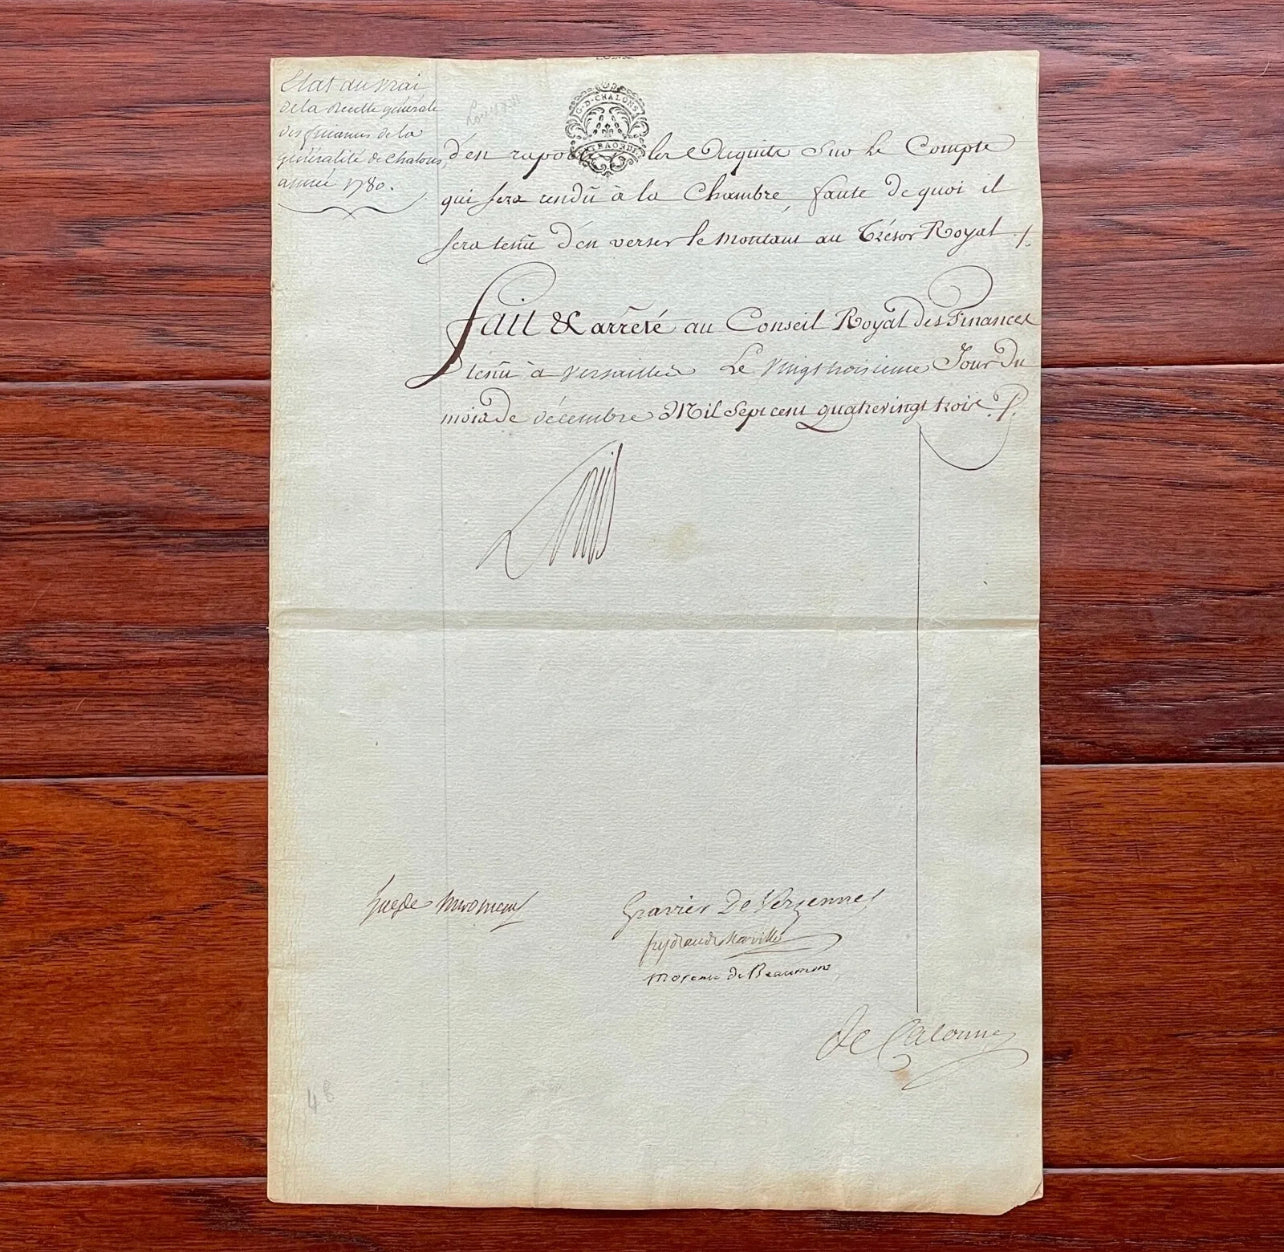 Etat au vrai
de la Recette générale
des finances de la
généralité de Chalons
année 1780.
G.D. CHALONS
EXTRAORDRE
d'en raporter les Acquits Sur le Compte
qui sera rendū à la Chambre, faute de quoi il
sera tenū d'en verser le montant au Trésor Royal ./.
Fait & arrêté au Conseil Royal des Finances
tenū à Versailles Le Vingt troisieme Jour Du
mois de décembre Mil Sept cent quatrevingt trois ./.
Louis
Hue de Miromenil
Gravier De Vergennes
feydeau de Marville
Moreau de Beaumont
De Calonne
48